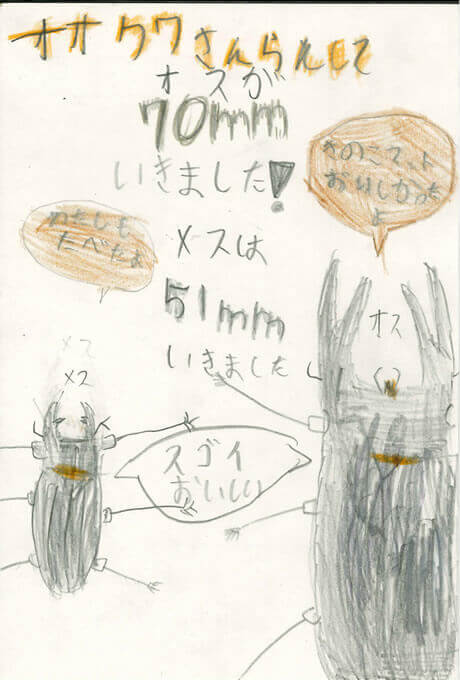 オオクワさんらんして
オスが
70mm
いきました!
きのこマット
おいしかった
よ
わたしも
たべたよ
メスは
51mm
いきました
オス
メス
メス
スゴイ
おいしい